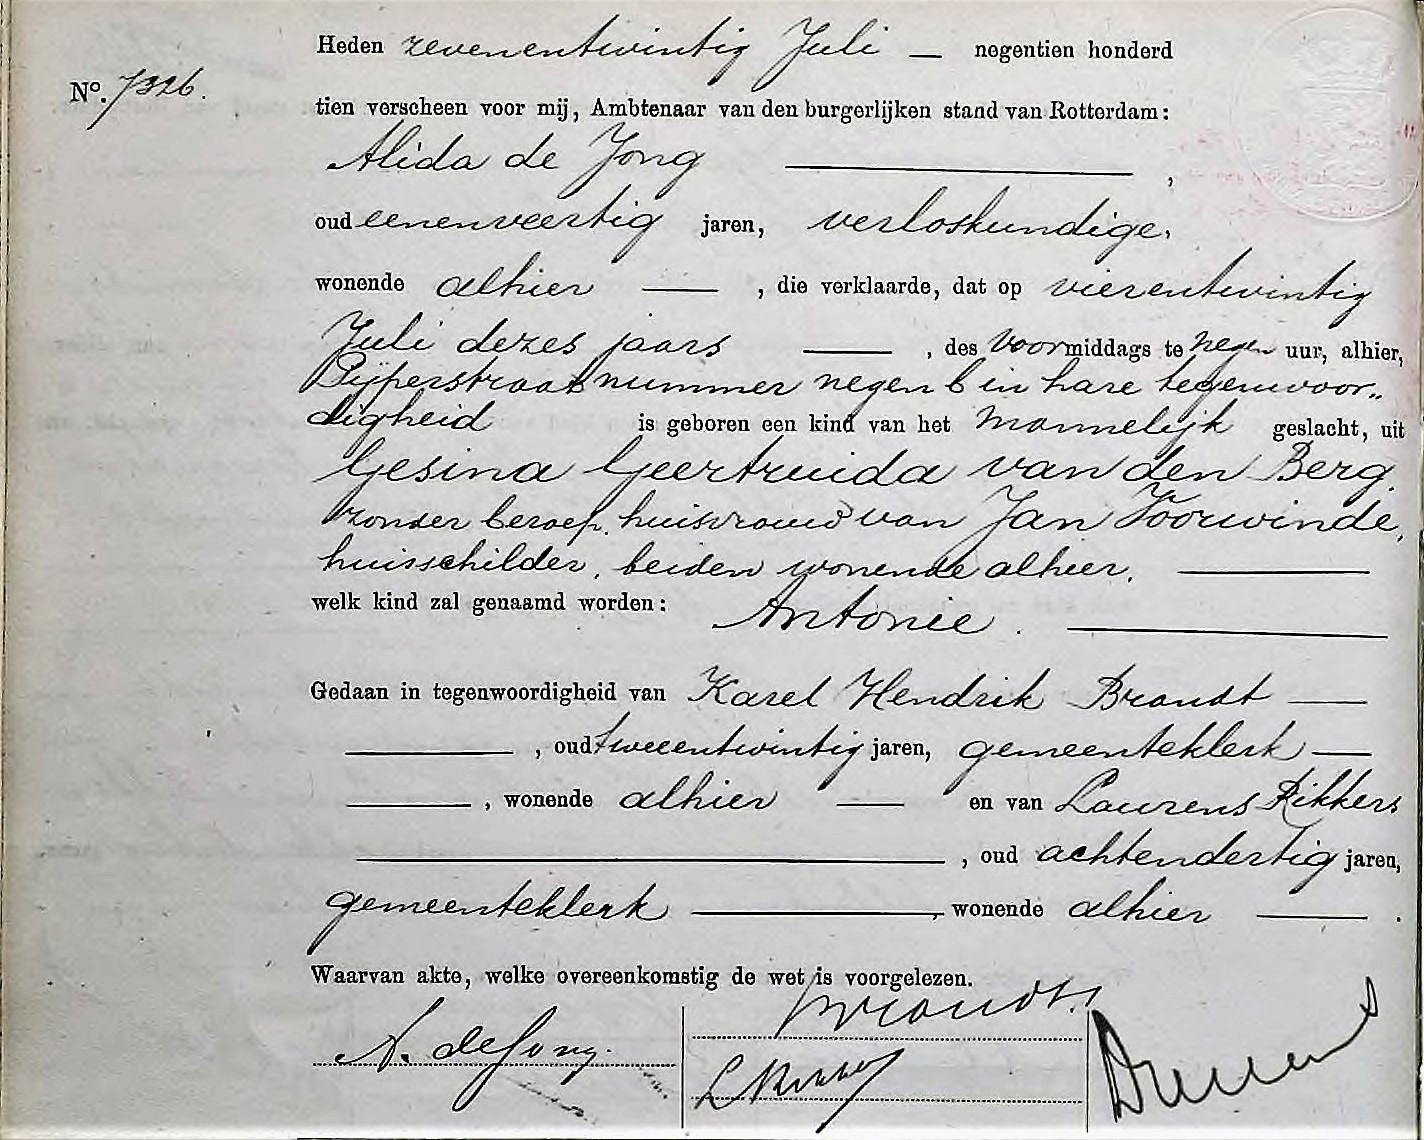 Heden zevenentwintig Juli — negentien honderd
No. 7326.
tien verscheen voor mij, Ambtenaar van den burgerlijken stand van Rotterdam:
Alida de Jong ,
oud eenenveertig jaren, verloskundige,
wonende alhier — , die verklaarde, dat op vierentwintig
Juli dezes jaars — , des Voormiddags te negen uur, alhier,
Pijperstraat nummer negen b in hare tegenwoor„
digheid is geboren een kind van het mannelijk geslacht, uit
Gesina Geertruida van den Berg,
zonder beroep, huisvrouw van Jan Voorwinde,
huisschilder, beiden wonende alhier. —
welk kind zal genaamd worden: Antonie. —
Gedaan in tegenwoordigheid van Karel Hendrik Brandt —
— , oud tweeentwintig jaren, gemeenteklerk —
— , wonende alhier — en van Laurens Rikkers
— , oud achtendertig jaren,
gemeenteklerk — , wonende alhier — .
Waarvan akte, welke overeenkomstig de wet is voorgelezen.
Brandt.
A. de Jong.
L Rikkers